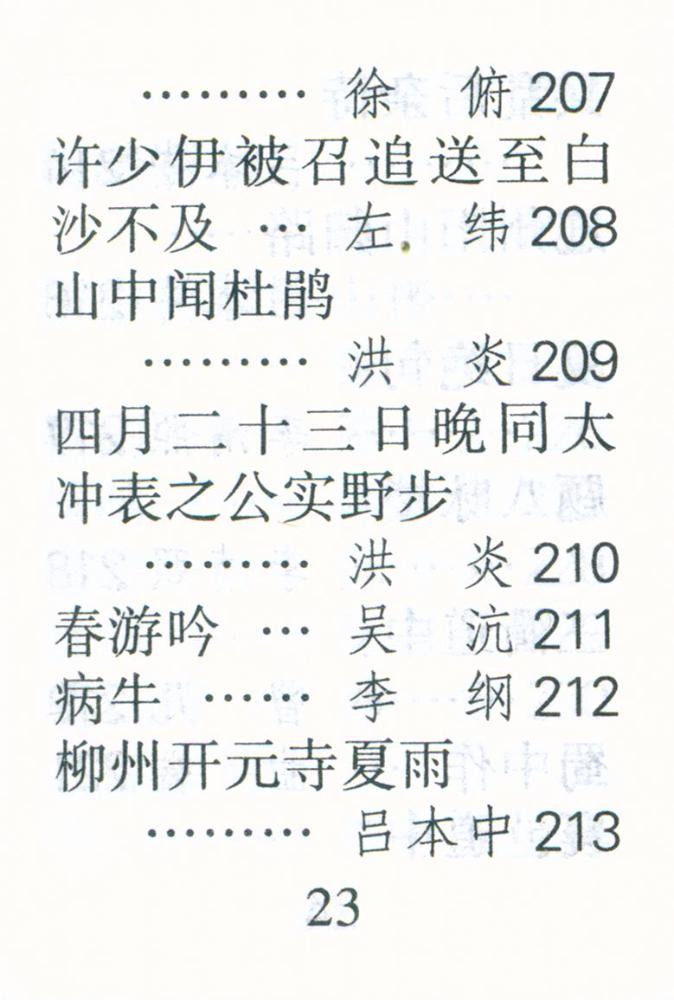 ……… 徐 俯 207
许少伊被召追送至白
沙不及 … 左 纬 208
山中闻杜鹃
……… 洪 炎 209
四月二十三日晚同太
冲表之公实野步
……… 洪 炎 210
春游吟 … 吴 沆 211
病牛 …… 李 纲 212
柳州开元寺夏雨
……… 吕本中 213
23